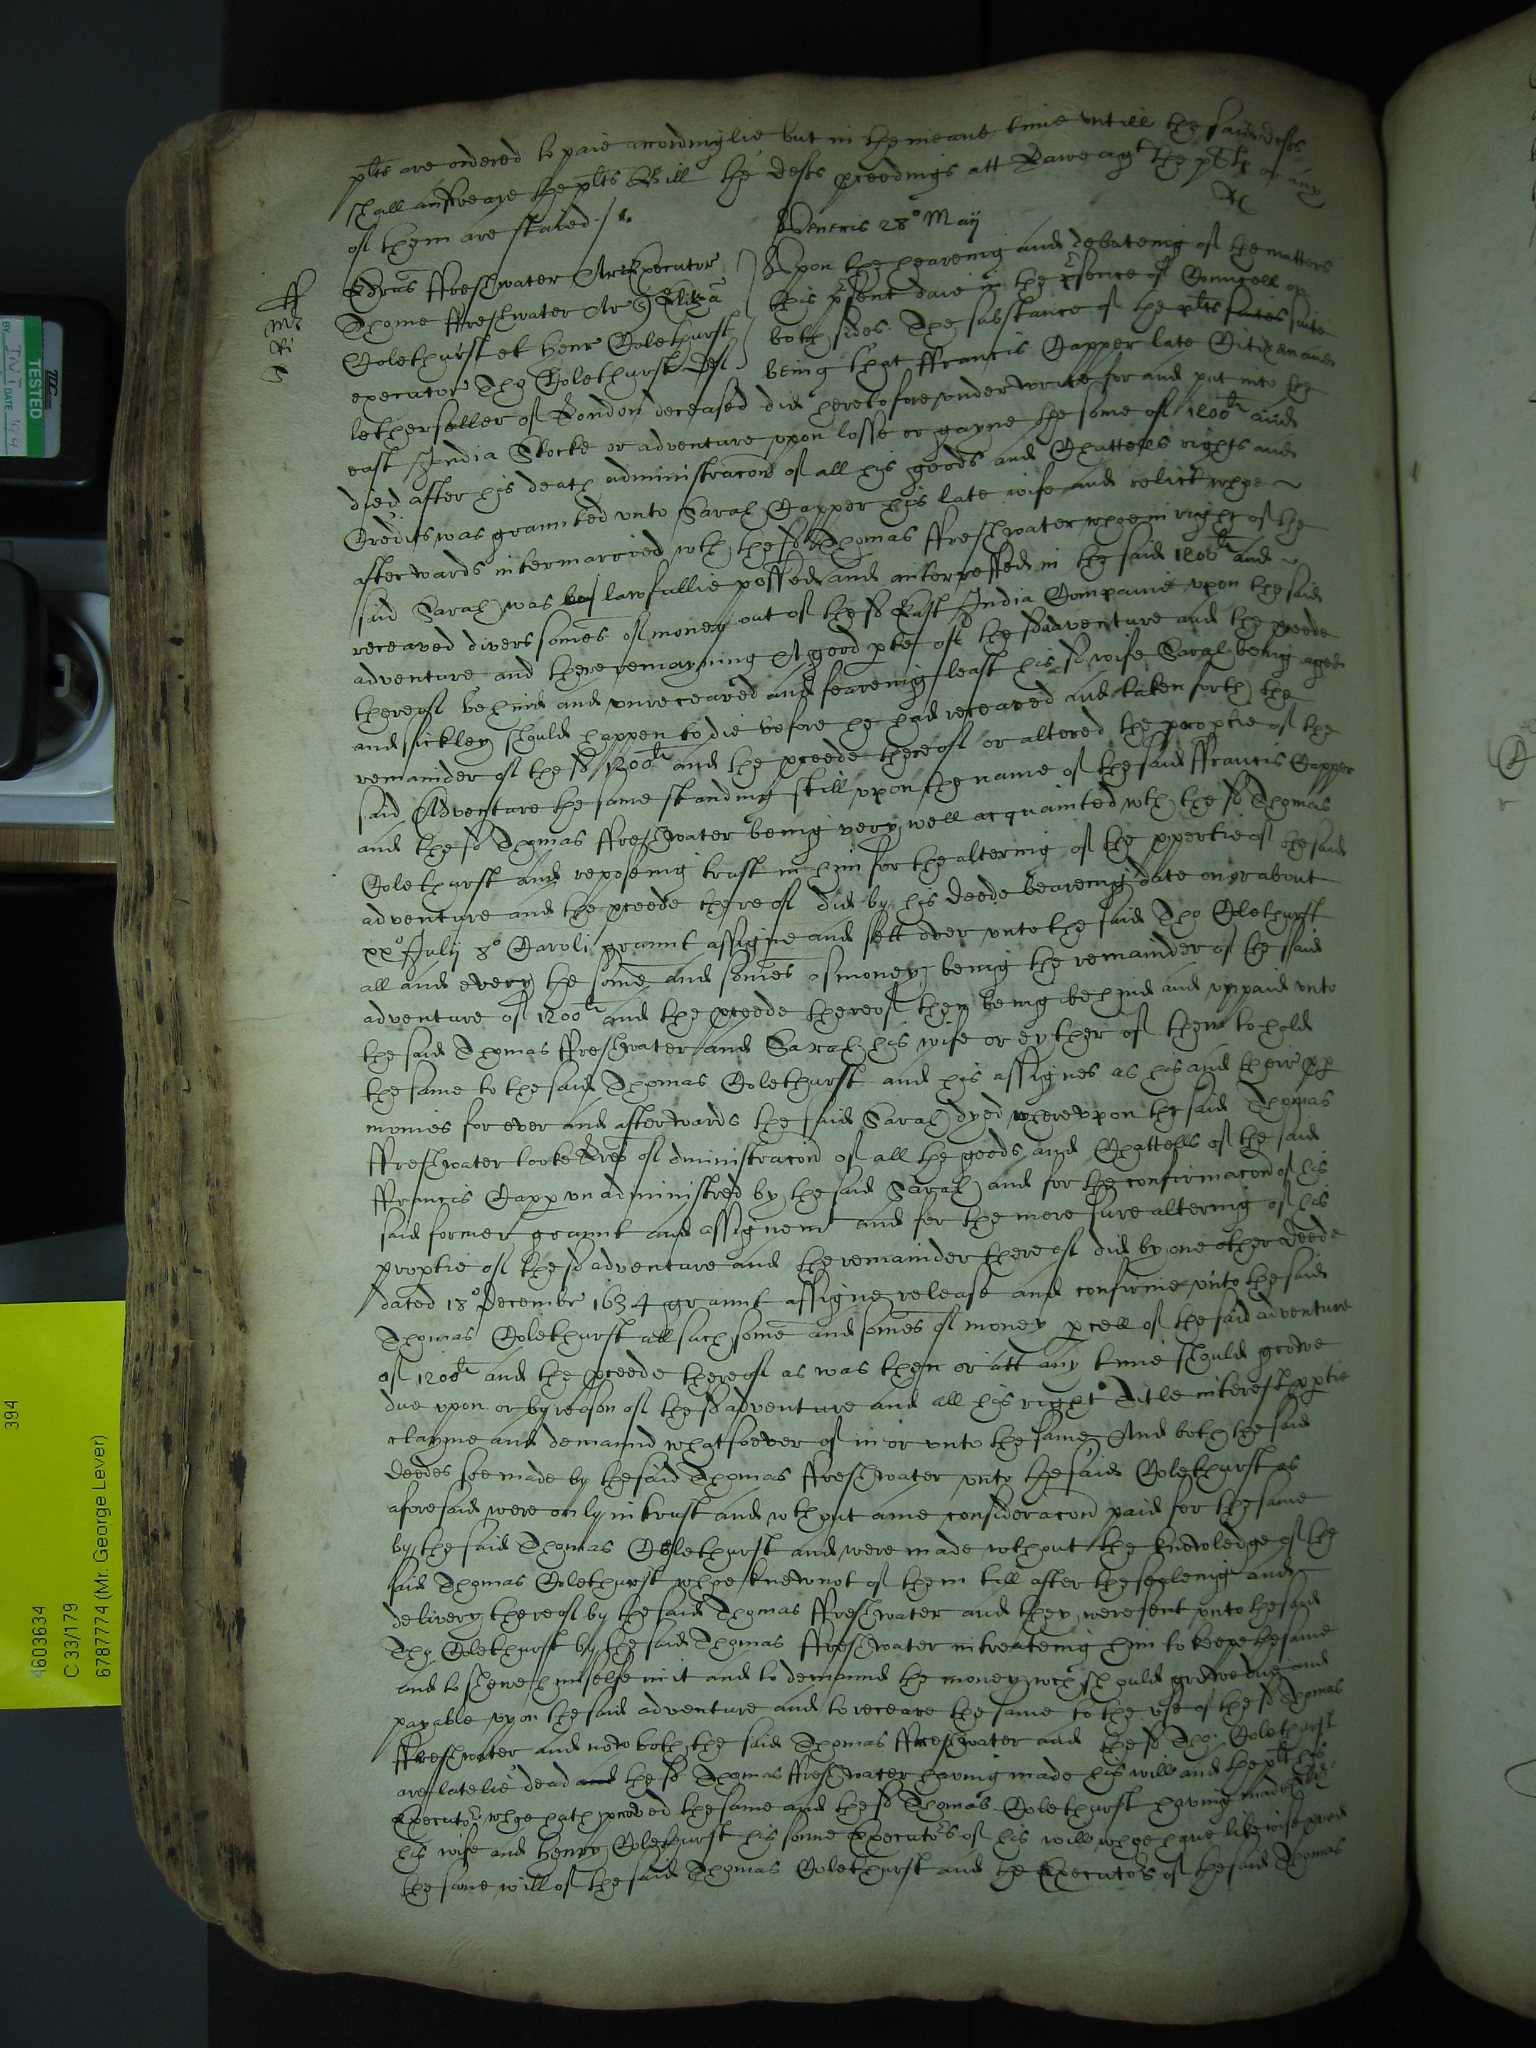 plts are ordered to paie accordinglie but in the meane time untill the said defts
shall answeare the plts Bill the defts proceedings att Lawe agt the plts or any
of them are staied /.
Veneris 28° May
Esdras ffreshwater Ar Executor
Thome ffreshwater Ar Eliza
Colethurst et Henr Colethurst
executor Tho Colethurst Def
Upon the heareing and debateing of the matters
this psent daie in the psence of Councell on
both sides. The substance of the plts suite
being that ffrancis Capper late Citizen and
letherseller of London deceased did heretofore underwrite for and put into the
east India Stocke or adventure upon losse or gayne the some of 1200li and
died after his death administracon of all his goods and Chattells rights and
Credits was graunted unto Sarah Capper his late wife and relict whoe
afterwards intermarried wth the sd Thomas ffreshwater whoe in right of the
said Sarah was lawfullie possed and interessed in the said 1200li and
receaved divers somes of money out of the sd East India Companie upon the said
adventure and there remayning A good pte of the sd adventure and the pceede
thereof behind and unreceaved and feareing least his sd wife Sarah being aged
and sickley should happen to die before he had receaved and taken forth the
remainder of the sd 1200li and the pceede thereof or altered the proptie of the
said Adventure the same standing still upon the name of the said ffrancis Capper
and the sd Thomas ffreshwater being very well acquainted wth the sd Thomas
Colethurst and reposeing trust in him for the altering of the ppertie of the said
adventure and the pceede thereof did by his deede beareing date on or about
xx° July 8° Caroli graunt assigne and sett over unto the said Tho Colethurst
all and every the some and somes of money being the remainder of the said
adventure of 1200li and the pceede thereof then being behind and unpaid unto
the said Thomas ffreshwater and Sarah his wife or eyther of them to hold
the same to the said Thomas Colethurst and his assignes as his and their pp
monies for ever and afterwards the said Sarah dyed whereupon the said Thomas
ffreshwater tooke Lres of Administracon of all the goods and Chattells of the said
ffrancis Capp unadministred by the said Sarah and for the confirmacon of his
said former graunt and assignemt and for the more sure altering of his
proptie of the sd adventure and the remainder thereof did by one other deede
dated 18° Decembr 1634 graunt assigne release and confirme unto the said
Thomas Colethurst all such some and somes of money pcell of the said adventure
of 1200li and the pceede thereof as was then or att any time should growe
due upon or by reason of the sd adventure and all his right Title interest pptie
clayme and demaund whatsoever of in or unto the same And both the said
deedes soe made by the said Thomas ffreshwater unto the said Colethurst as
aforesaid were only in trust and wthout anie consideracon paid for the same
by the said Thomas Colethurst and were made wthout the knowledge of the
said Thomas Colethurst whoe knew not of them till after the sealeing and
delivery thereof by the said Thomas ffreshwater and they were sent unto the said
Tho Colethurst by the said Thomas ffreshwater intreateing him to keepe the same
and to shewe himselfe in it and to demaund the money wch should growe due and
payable upon the said adventure and to receave the same to the use of the sd Thomas
ffreshwater and now both the said Thomas ffreshwater and the sd Tho: Colethurst
are latelie dead and the sd Thomas ffreshwater haveing made his will and the plt his
Executor whoe hath proved the same and the sd Thomas Colethurst having made
his wife and Henry Colethurst his sonne Executors of his will whoe have likewise pved
the same will of the said Thomas Colethurst and the Executors of the said Thomas
394
4603634
C 33/179
6787774 (Mr. George Lever)
TESTED
BY
DATE